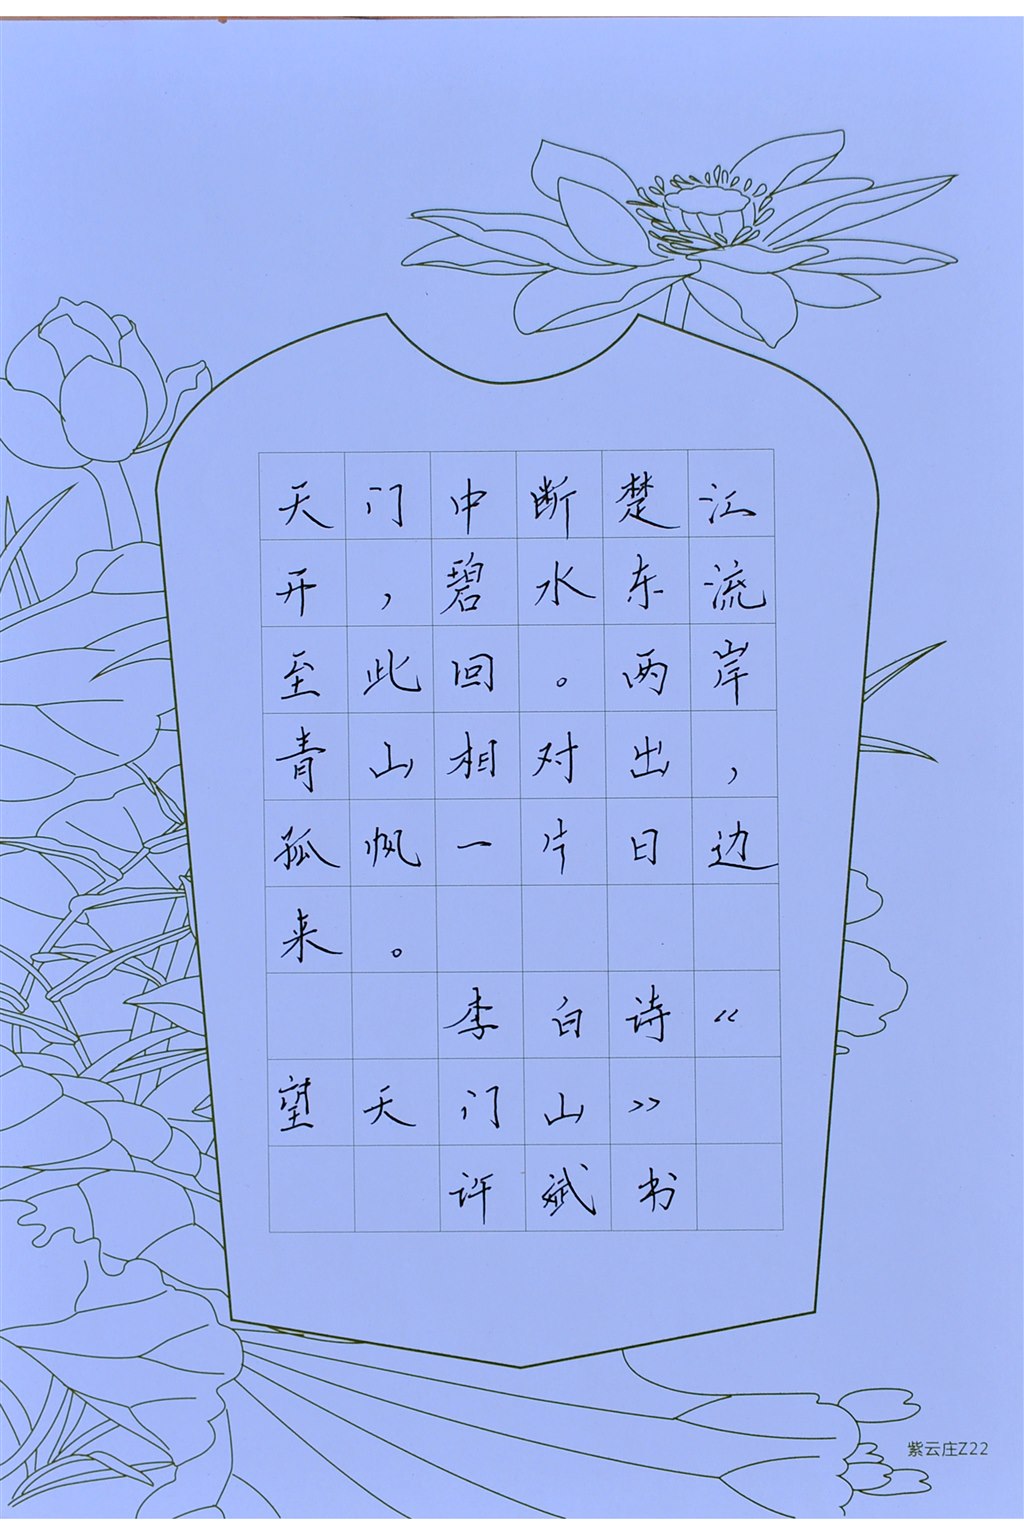 天门中断楚江
开，碧水东流
至此回。两岸
青山相对出，
孤帆一片日边
来。
李白诗《
望天门山》
许斌书
紫云庄Z22